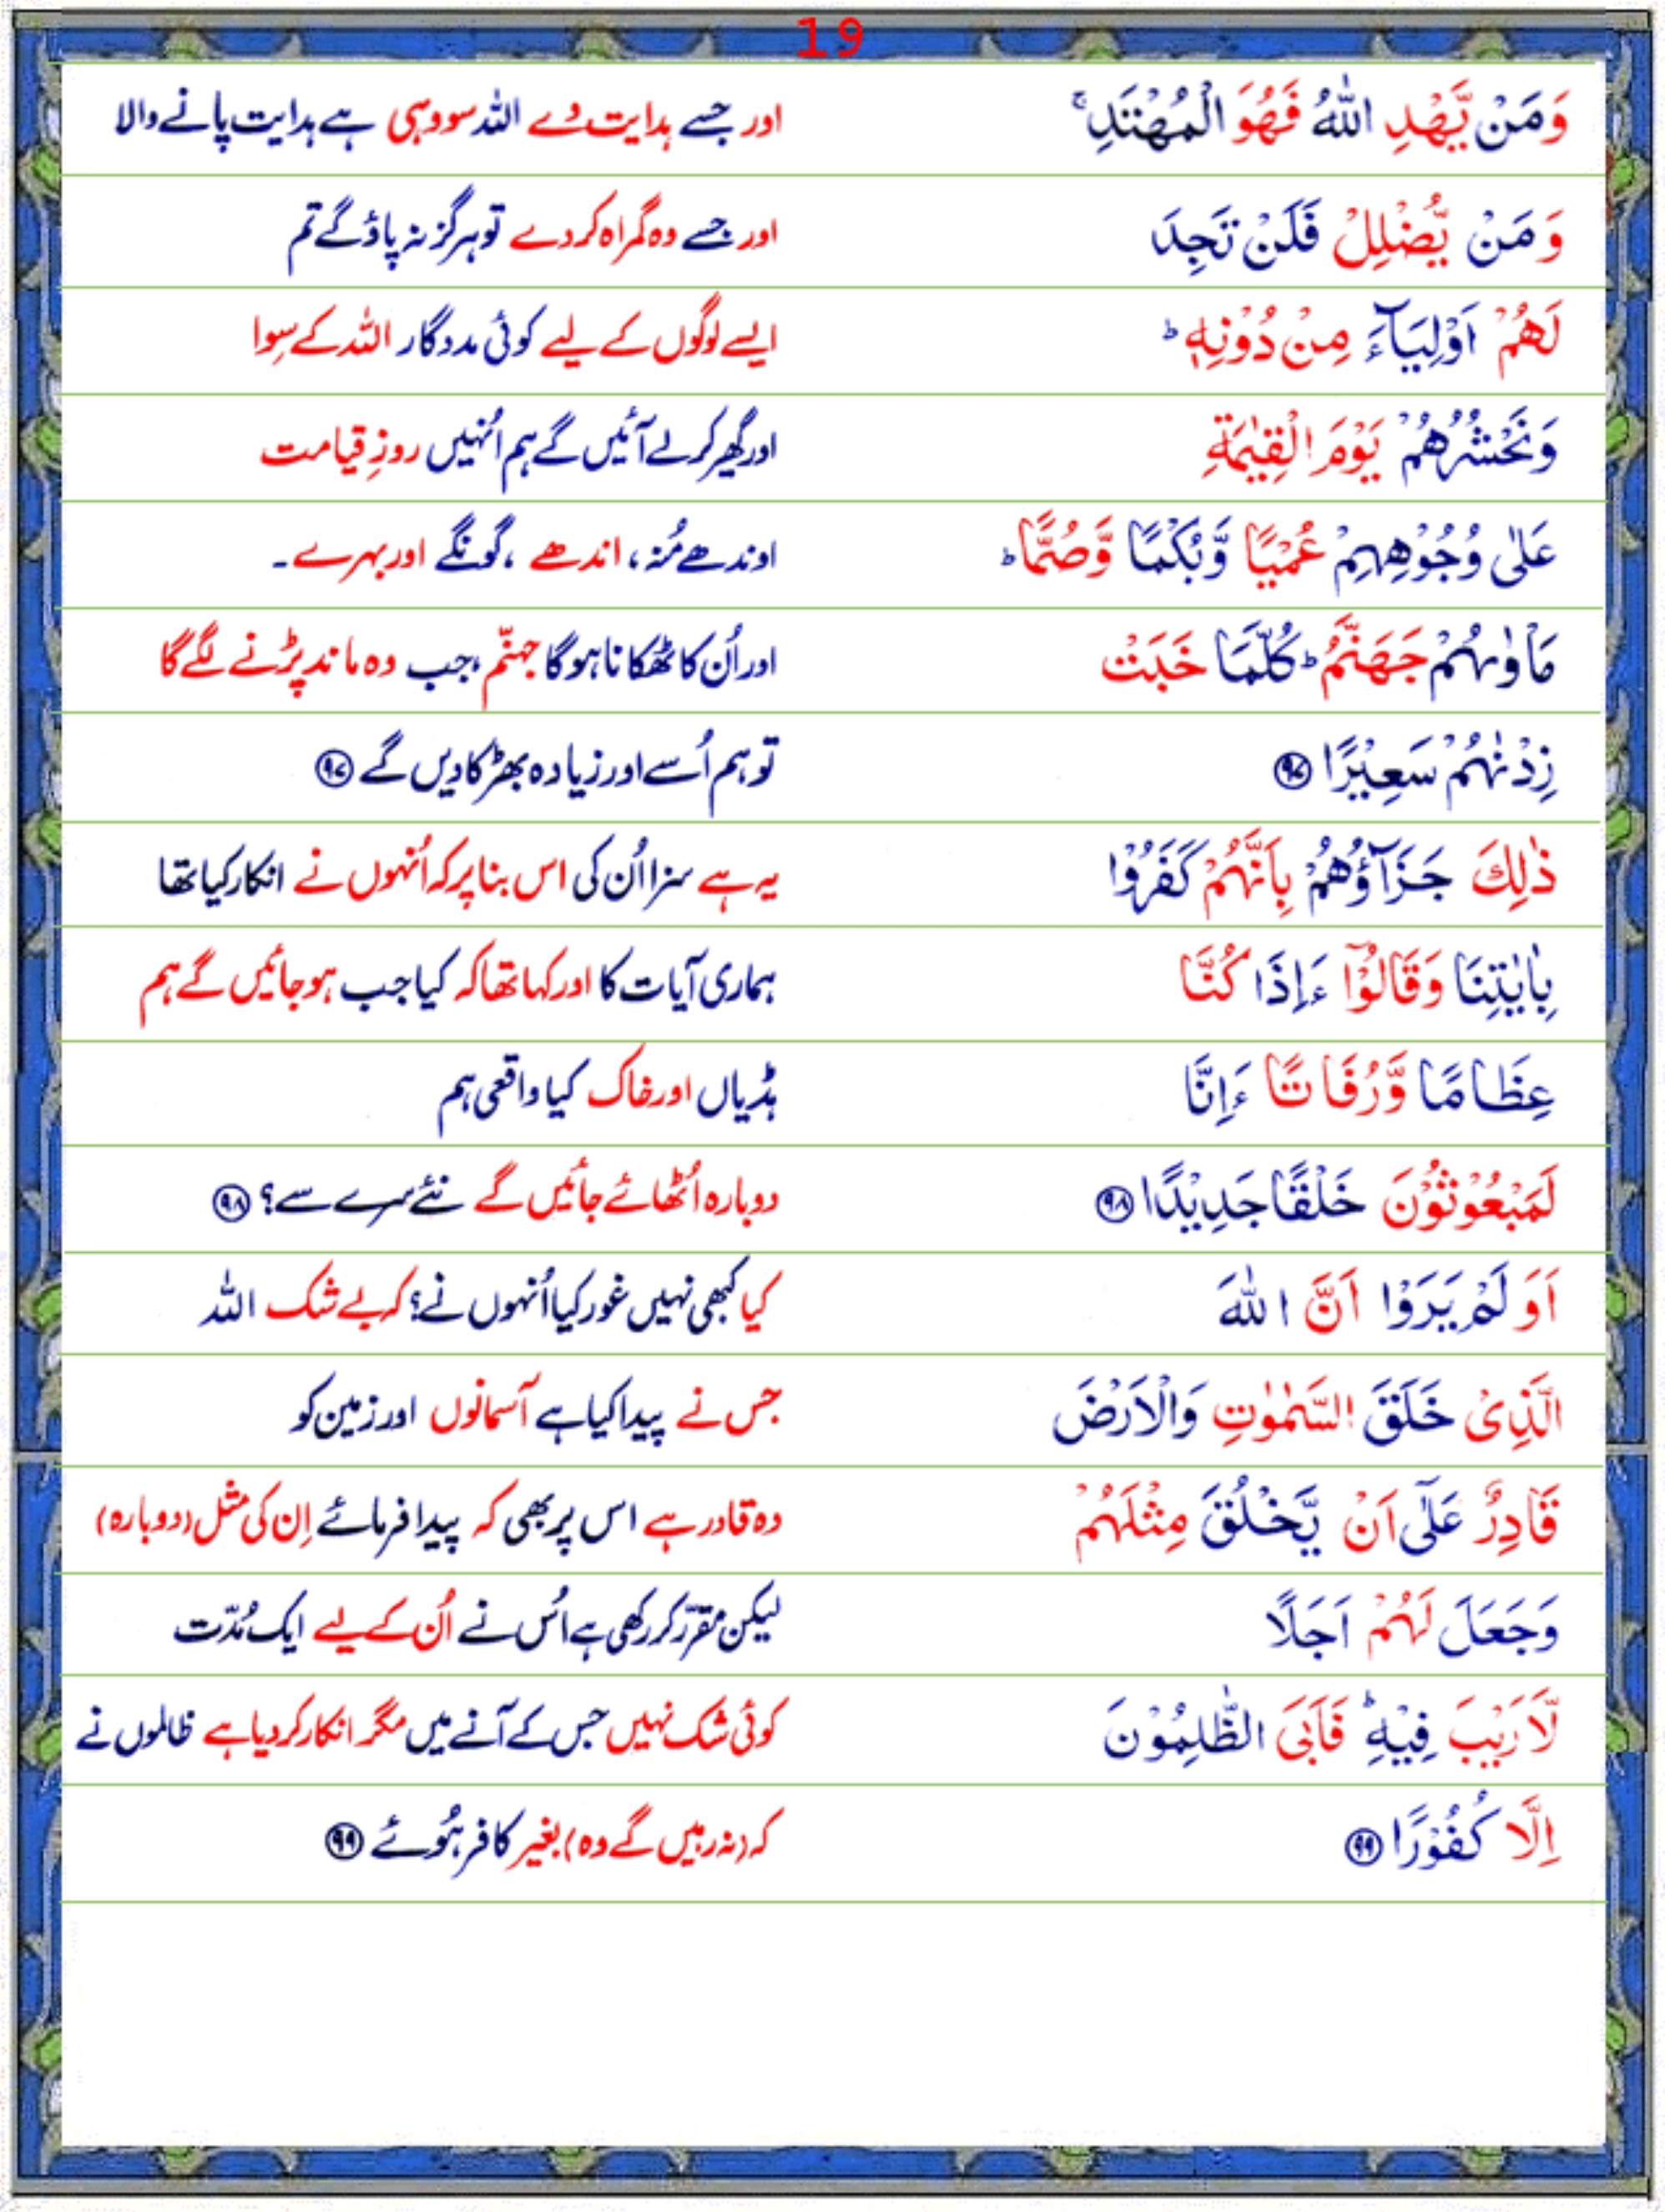 19
وَمَنْ یَّهْدِ اللّٰهُ فَهُوَ الْمُهْتَدِ ۚ اور جسے ہدایت دے اللہ سو وہی ہے ہدایت پانے والا
وَمَنْ یُّضْلِلْ فَلَنْ تَجِدَ اور جسے وہ گمراہ کردے تو ہرگز نہ پاؤ گے تم
لَهُمْ اَوْلِیَآءَ مِنْ دُوْنِهٖ ؕ ایسے لوگوں کے لیے کوئی مددگار اللہ کے سِوا
وَنَحْشُرُهُمْ یَوْمَ الْقِیٰمَةِ اور گھیر کر لے آئیں گے ہم اُنہیں روزِ قیامت
عَلٰی وُجُوْهِهِمْ عُمْیًا وَّبُكْمًا وَّصُمًّا ؕ اوندھے مُنہ، اندھے ، گونگے اور بہرے ۔
مَاْوٰىهُمْ جَهَنَّمُ ؕ كُلَّمَا خَبَتْ اور اُن کا ٹھکانا ہوگا جہنّم ، جب وہ ماند پڑنے لگے گا
زِدْنٰهُمْ سَعِیْرًا ۹۷ تو ہم اُسے اور زیادہ بھڑکا دیں گے ۹۷
ذٰلِكَ جَزَآؤُهُمْ بِاَنَّهُمْ كَفَرُوْا یہ ہے سزا اُن کی اس بنا پر کہ اُنہوں نے انکار کیا تھا
بِاٰیٰتِنَا وَقَالُوْۤا ءَاِذَا كُنَّا ہماری آیات کا اور کہا تھا کہ کیا جب ہوجائیں گے ہم
عِظَامًا وَّرُفَاتًا ءَاِنَّا ہڈیاں اور خاک کیا واقعی ہم
لَمَبْعُوْثُوْنَ خَلْقًا جَدِیْدًا ۹۸ دوبارہ اُٹھائے جائیں گے نئے سرے سے؟ ۹۸
اَوَلَمْ یَرَوْا اَنَّ اللّٰهَ کیا کبھی نہیں غور کیا اُنہوں نے؟ کہ بے شک اللہ
الَّذِیْ خَلَقَ السَّمٰوٰتِ وَالْاَرْضَ جس نے پیدا کیا ہے آسمانوں اور زمین کو
قَادِرٌ عَلٰۤی اَنْ یَّخْلُقَ مِثْلَهُمْ وہ قادر ہے اس پر بھی کہ پیدا فرمائے اِن کی مثل (دوبارہ)
وَجَعَلَ لَهُمْ اَجَلًا لیکن مقرّر کر رکھی ہے اُس نے اُن کے لیے ایک مُدّت
لَّا رَیْبَ فِیْهِ ؕ فَاَبَی الظّٰلِمُوْنَ کوئی شک نہیں جس کے آنے میں مگر انکار کردیا ہے ظالموں نے
اِلَّا كُفُوْرًا ۹۹ کہ (نہ رہیں گے وہ) بغیر کافر ہُوئے ۹۹